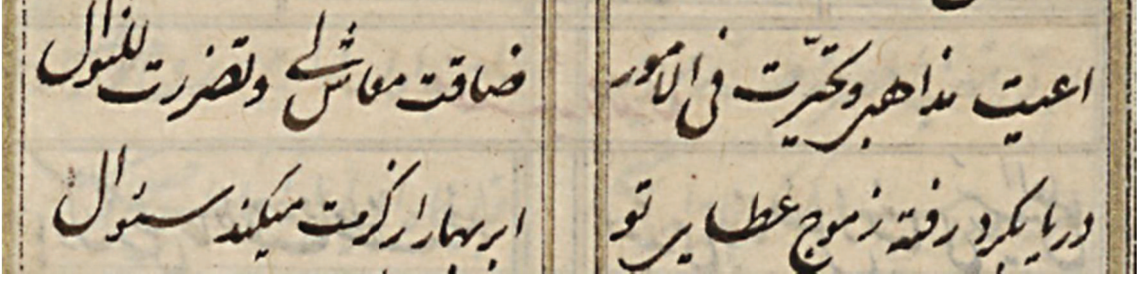 اعیت مذاهبی وتحیّرت فی الامور
ضاقت معاشی وتضررت للنوال
دریا بگرد رفته ز موج عطای تو
ابر بهار از کرمت میکند سئوال